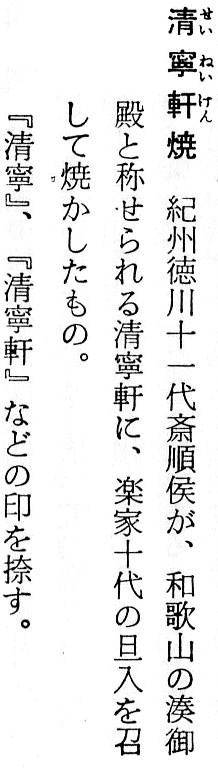 清寧軒焼　紀州徳川十一代斎順侯が、和歌山の湊御
殿と称せられる清寧軒に、楽家十代の旦入を召
して焼かしたもの。
『清寧』、『清寧軒』などの印を捺す。
せいねいけん